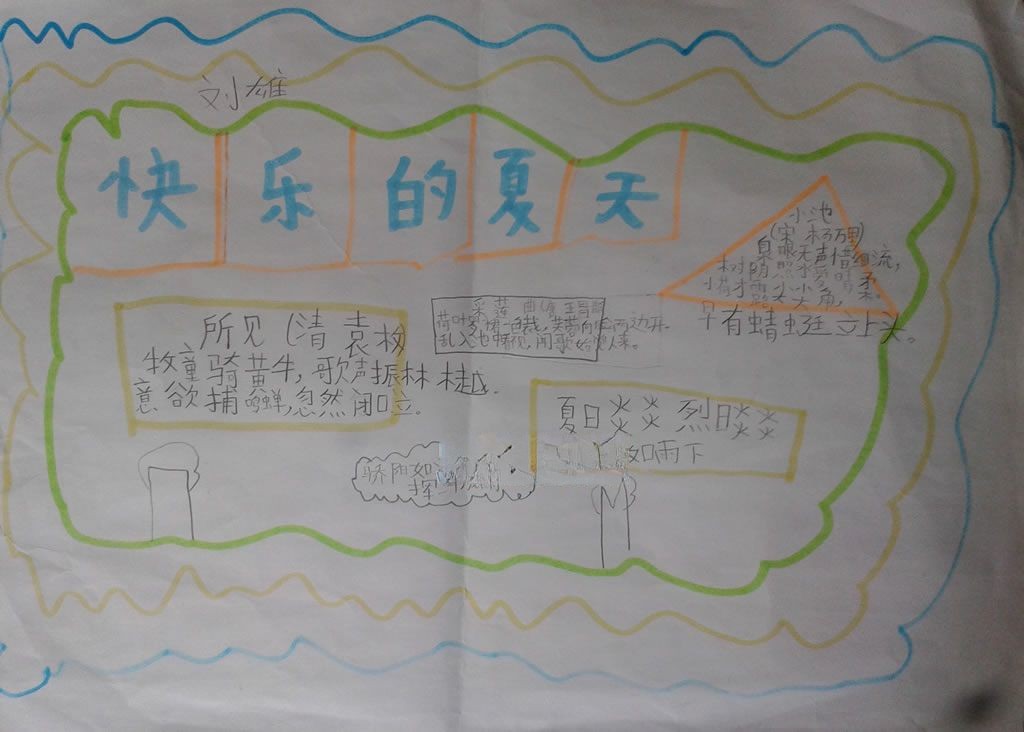 刘雄
快乐的夏天
小池
(宋 杨万里)
泉眼无声惜细流,
树阴照水爱晴柔。
小荷才露尖尖角,
早有蜻蜓立上头。
采莲曲(唐 王昌龄
荷叶罗裙一色裁,芙蓉向脸两边开。
乱入池中 闻歌始觉 人来。
所见(清 袁枚
牧童骑黄牛,歌声振林樾.
意欲捕鸣蝉,忽然闭口立。
夏日炎炎 烈日炎炎
如雨下
骄阳如
挥